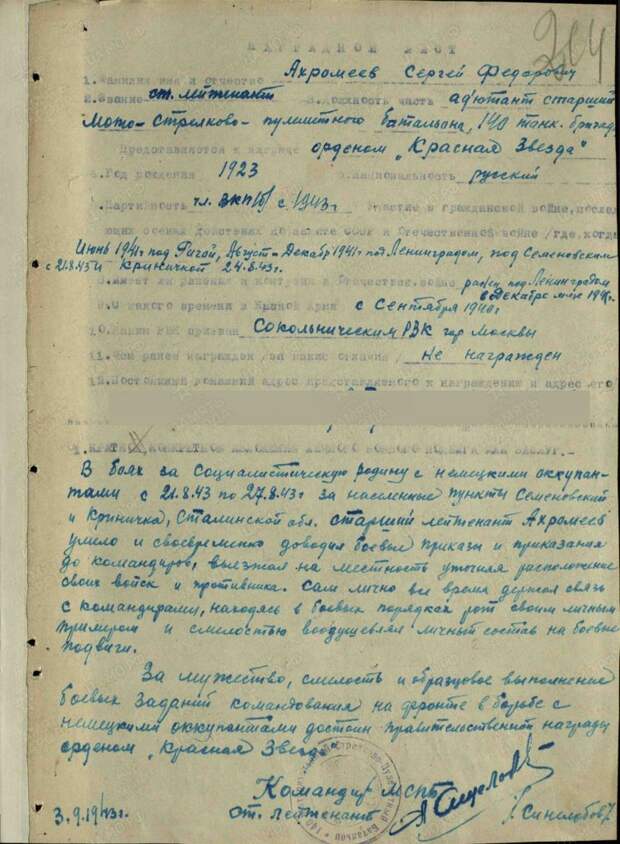 304
НАГРАДНОЙ ЛИСТ
1. Фамилия имя и отчество Ахромеев Сергей Федорович
2. Звание ст. лейтенант 3. Должность часть ад'ютант старший
Мото-стрелково-пулеметного батальона, 140 танк. бригады
Представляется к награде орденом „Красная Звезда"
4. Год рождения 1923 5. Национальность русский
6. Партийность чл. ВКП(б) с 1943 г. Участие в гражданской войне, последу
ющих боевых действиях по защите СССР и Отечественной войне /где, когда
Июнь 1941 г под Ригой, Август-Декабрь 1941 г под Ленинградом, под Семеновским
с 21.8.43 и Криничкой 24.8.43 г.
8. Имеет ли ранения и контузии в Отечествен. войне ранен под Ленинградом
в декабре м-це 1941 г.
9. С какого времени в Красной Армии с Сентября 1940 г
10. Каким РВК призван Сокольническим РВК гор Москвы
11. Чем ранее награжден /за какие отличия/ Не награжден
12. Постоянный домашний адрес представляемого к награждению и адрес его
1. КРАТКОЕ, КОНКРЕТНОЕ ИЗЛОЖЕНИЕ ЛИЧНОГО БОЕВОГО ПОДВИГА ИЛИ ЗАСЛУГ.-
В боях за социалистическую родину с немецкими оккупан-
тами с 21.8.43 по 27.8.43 г за населенные пункты Семеновский
и Криничка, Сталинской обл. старший лейтенант Ахромеев
умело и своевременно доводил боевые приказы и приказания
до командиров, выезжал на местность уточняя расположение
своих войск и противника. Сам лично все время держал связь
с командирами, находясь в боевых порядках рот своим личным
примером и смелостью воодушевлял личный состав на боевые
подвиги.
За мужество, смелость и образцовое выполнение
боевых заданий командования на фронте в борьбе с
немецкими оккупантами достоин правительственной награды
орденом „Красная Звезда
Командир МСПБ
3.9.1943 г. ст. лейтенант /Синолобов/